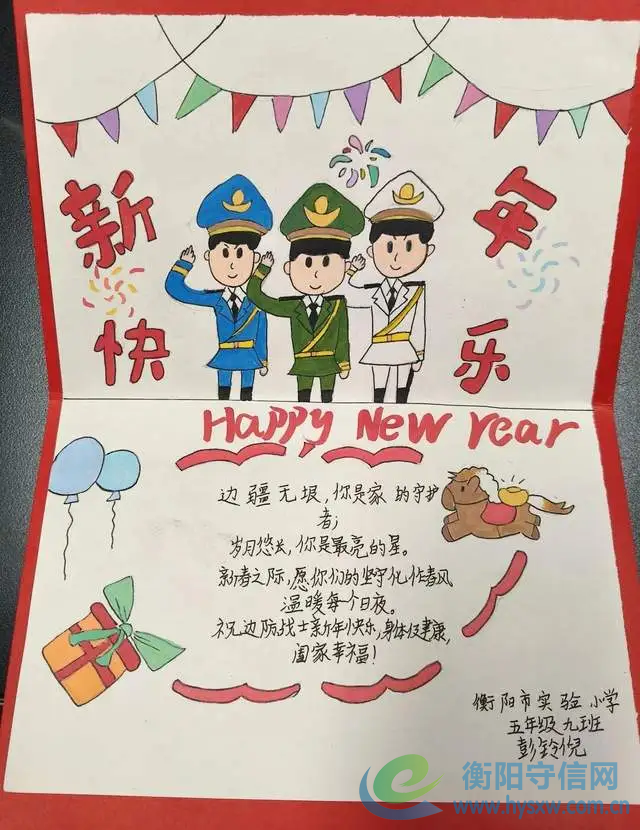 新年
快乐
Happy New Year
边疆无垠,你是家的守护
者;
岁月悠长,你是最亮的星。
新春之际,愿你们的坚守化作春风,
温暖每个日夜。
祝边防战士新年快乐,身体健康,
阖家幸福!
衡阳市实验小学
五年级九班
彭铃倪
衡阳守信网
www.hysxw.com.cn